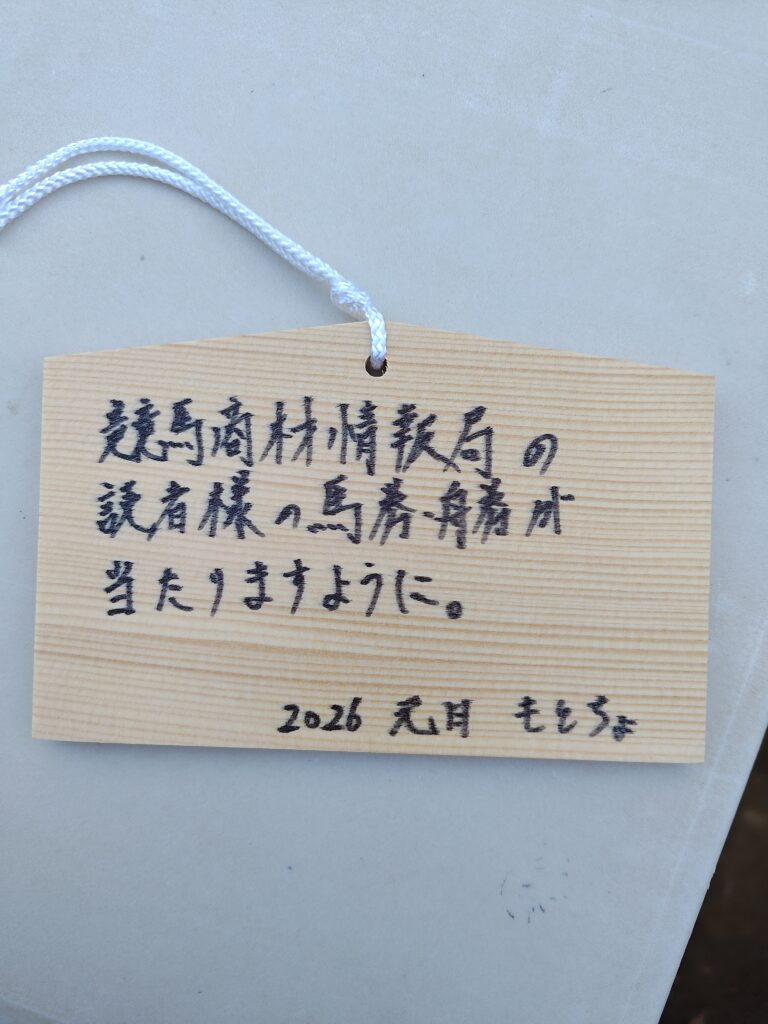 競馬商材情報局の
読者様の馬券・舟券が
当たりますように。
2026 元日 もとちょ